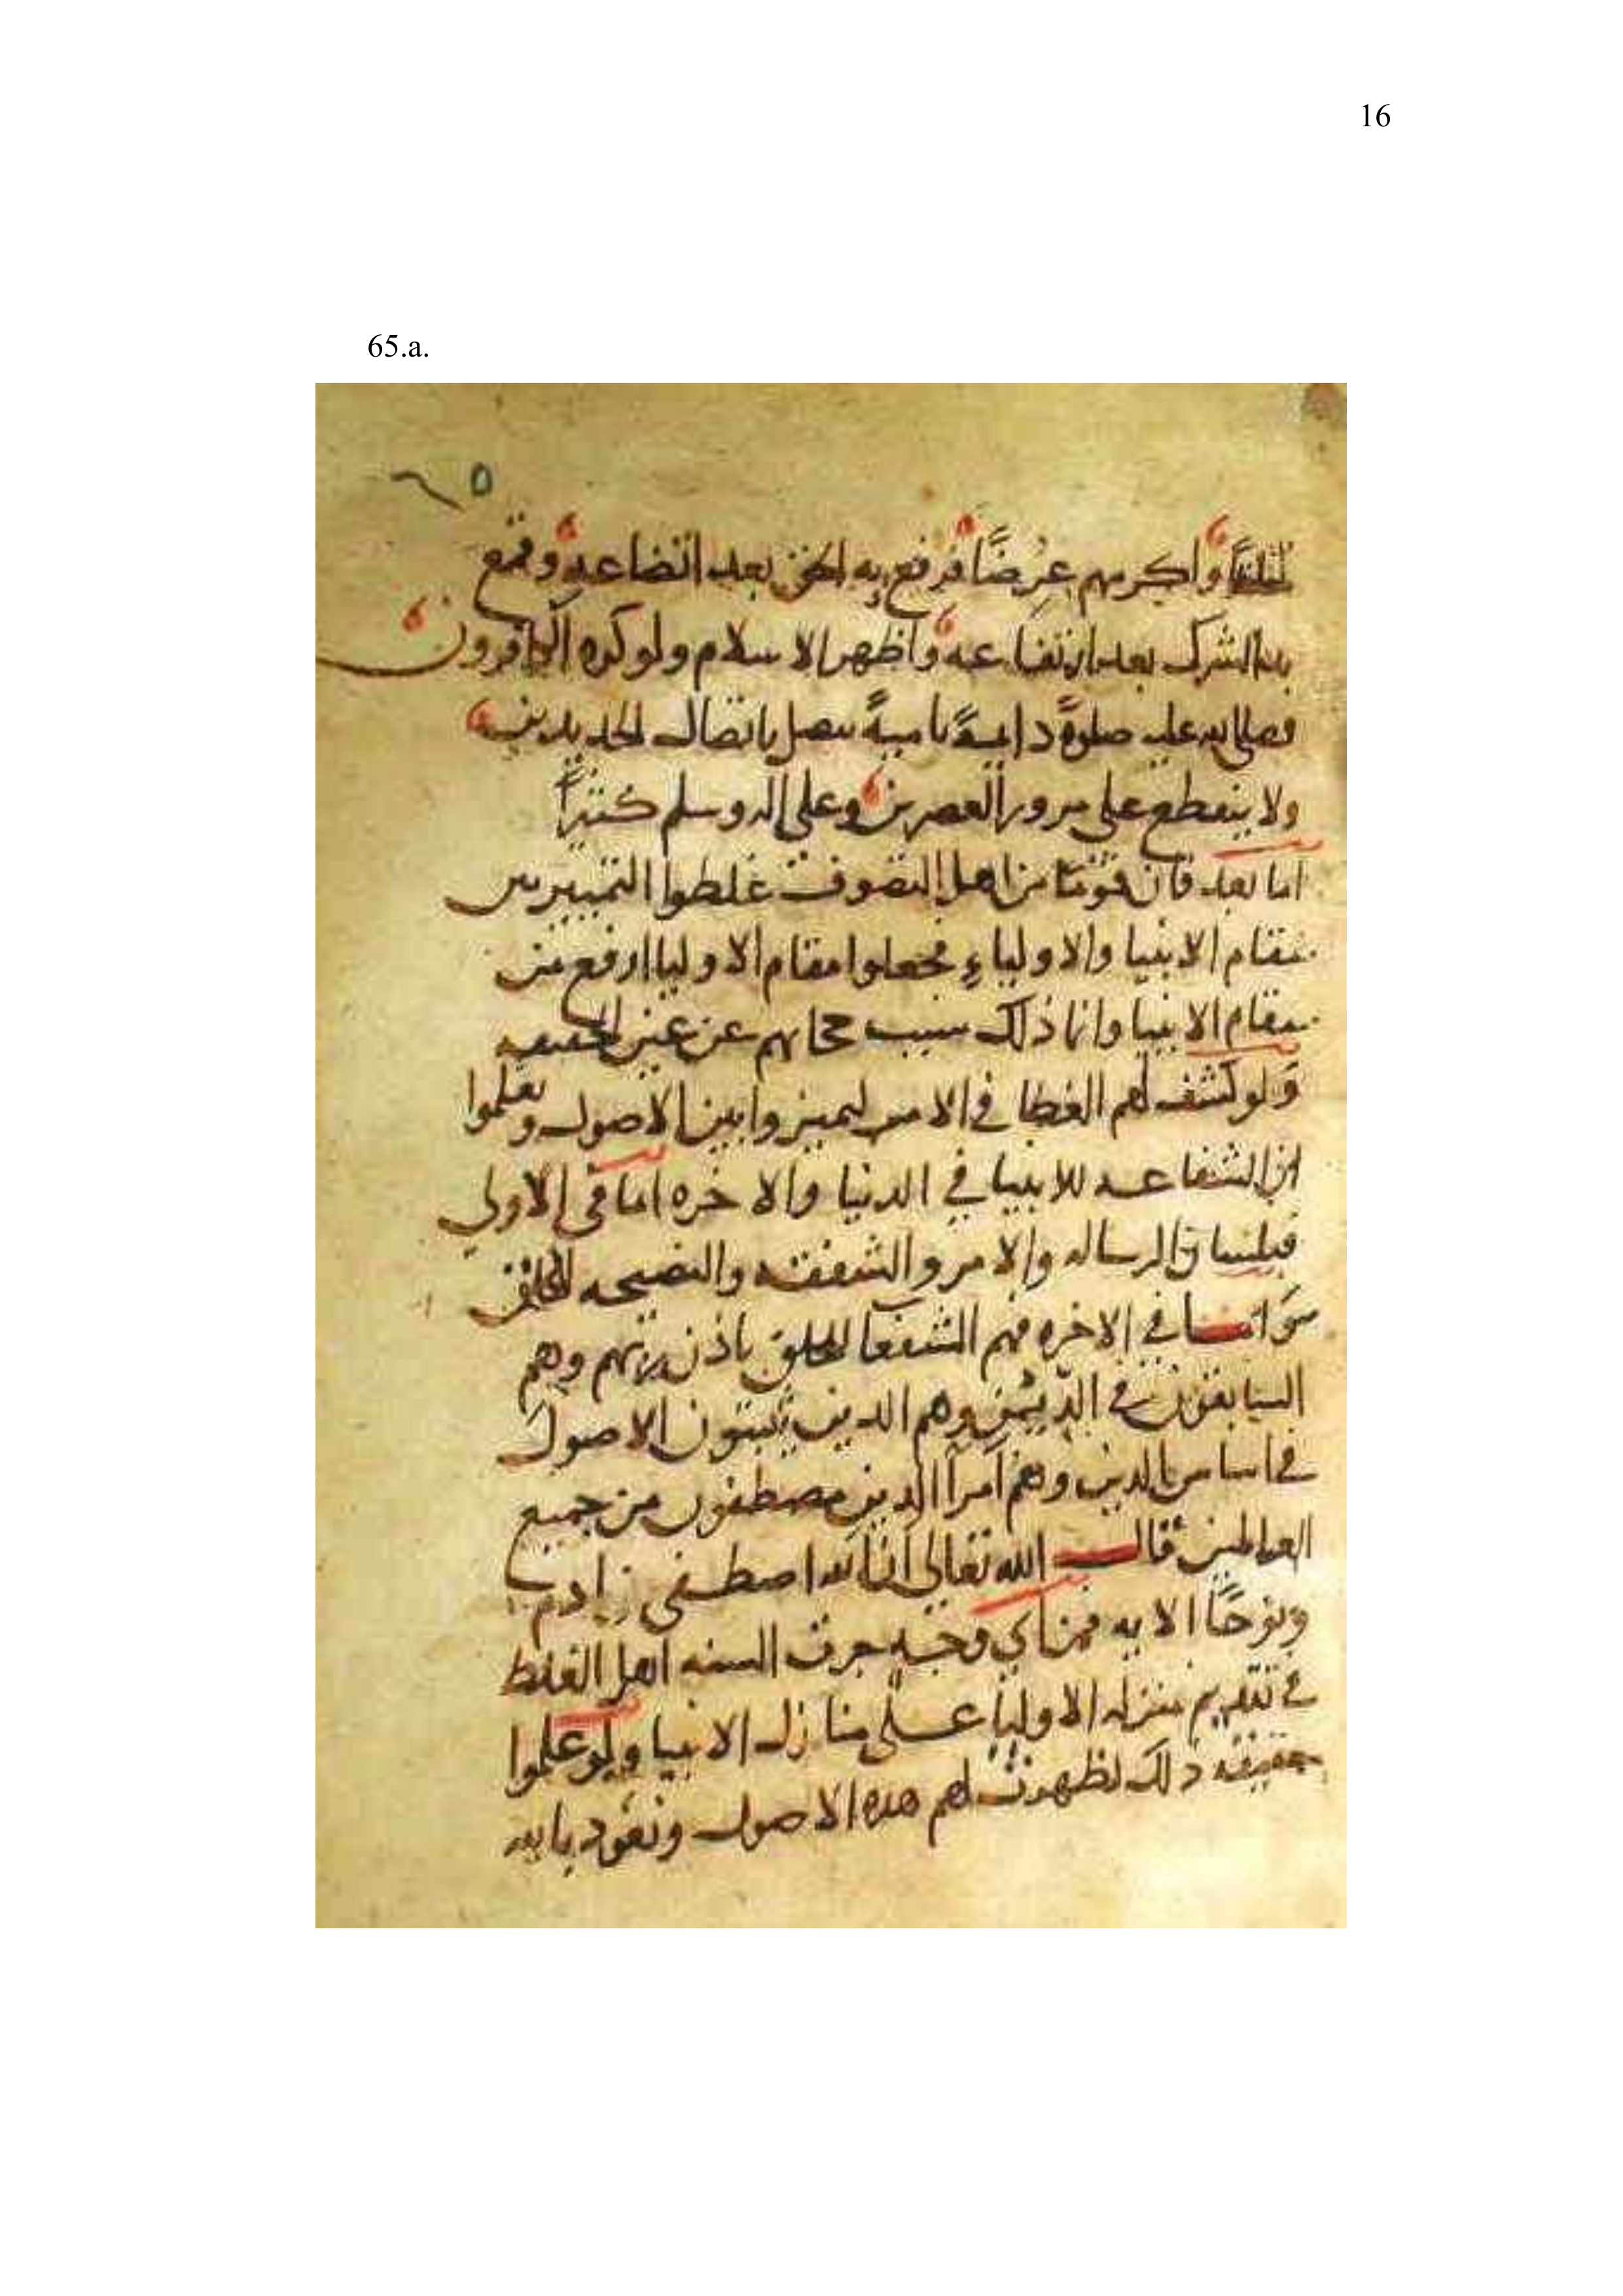 16
65.a.
٦٥
واكرمهم عرضًا فرفع به الحق بعد اتضاعه وقمع
به الشرك بعد ارتفاعه واظهر الاسلام ولو كره الكافرون
فصلى الله عليه صلوةً دايمةً ناميةً تتصل باتصال الجديدين
ولا ينقطع على مرور العصرين وعلى اله وسلم كثيرًا
اما بعد فان قومًا من اهل التصوف غلطوا التمييز بين
مقام الانبيا والاولياءِ فجعلوا مقام الاوليا ارفع من
مقام الانبيا وانما ذلك سبب حجابهم عن عين الحقيقه
ولو كشف لهم الغطا في الامر لتميزوا بين الاصول وتعلموا
ان الشفاعه للانبيا في الدنيا والاخره اما في الاولى
الرساله والامر والشفقه والنصيحه للخلق
في الاخره فهم الشفعا للخلق باذن ربهم وهم
السابقون في الدين وهم الدين يثبتون الاصول
في اساس الدين وهم امرآ الدين مصطفون من جميع
العالمين قال الله تعالى ان الله اصطفى ادم
ونوحًا الايه فمن اي وجه جرت السنه اهل الغلط
في تقديم منزله الاوليا على منازل الانبيا ولو علموا
حقيقه دلك لظهرت لهم هده الاصول ونعود بالله